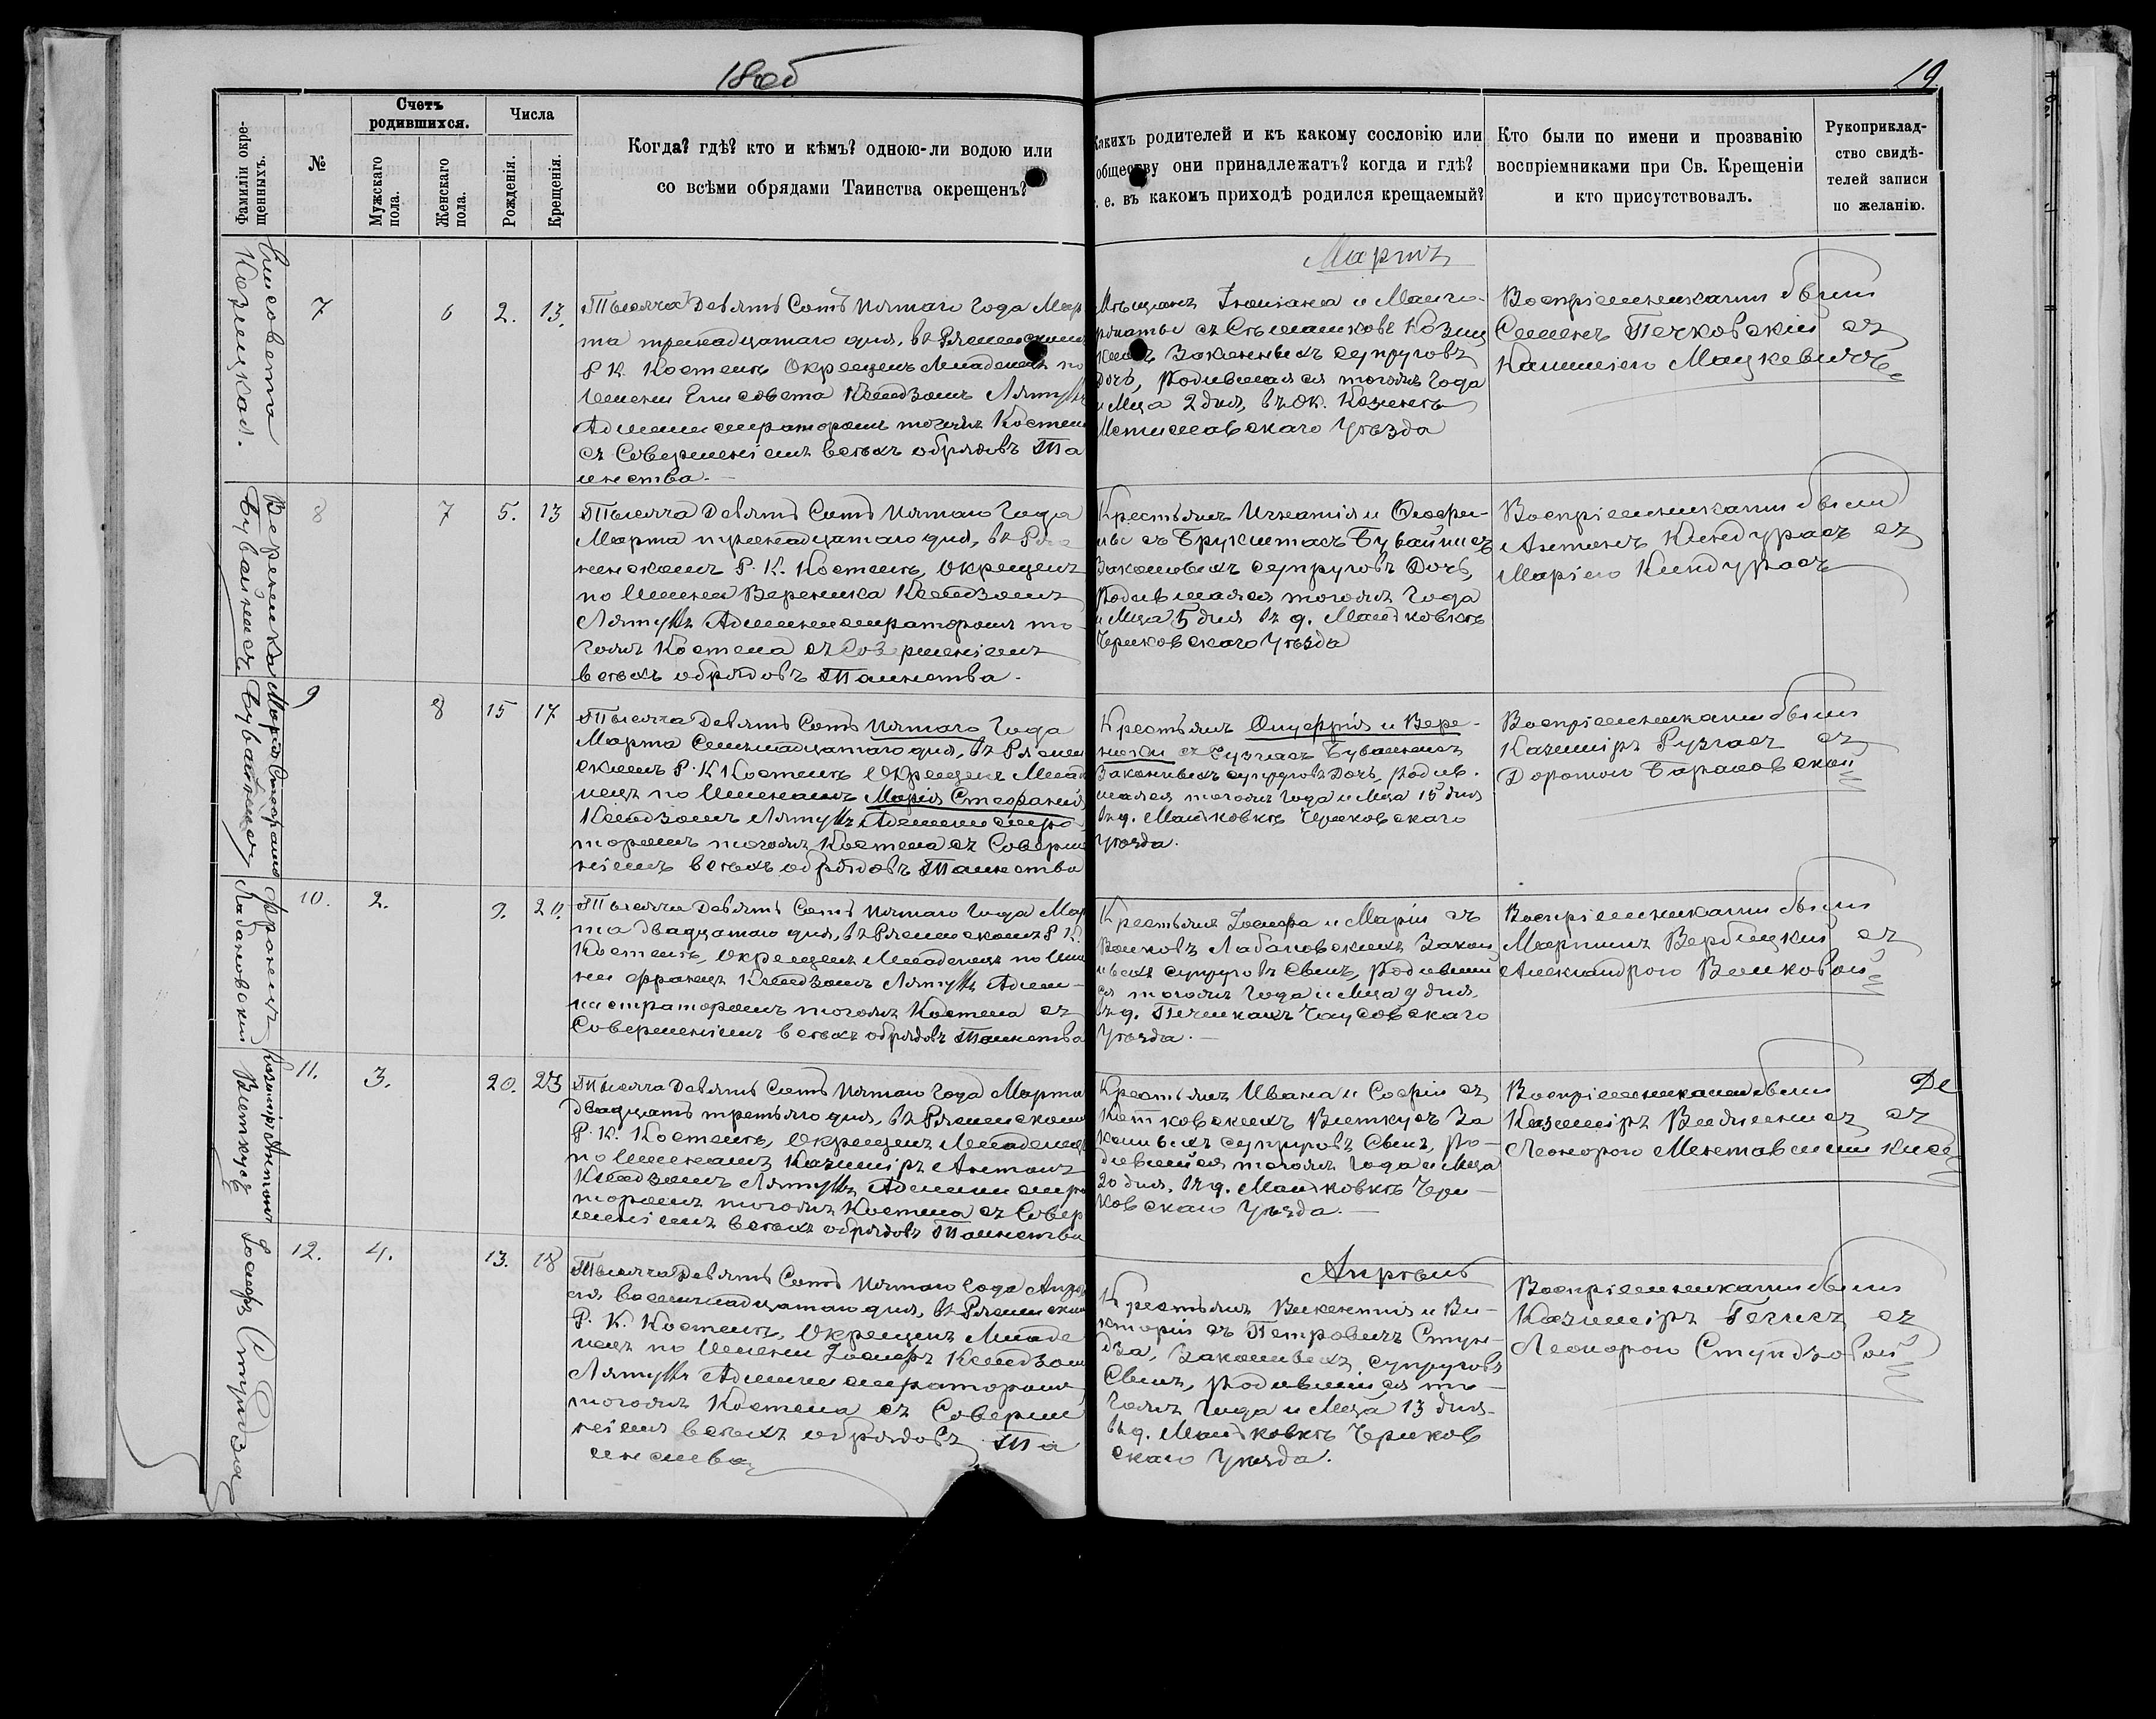 18об
19
Фамиліи окре-
щенныхъ.
№
Счетъ
родившихся.
Мужскаго
пола.
Женскаго
пола.
Числа
Рожденія.
Крещенія.
Когда? гдѣ? кто и кѣмъ? одною-ли водою или
со всѣми обрядами Таинства окрещенъ?
Какихъ родителей и къ какому сословію или
обществу они принадлежатъ? когда и гдѣ?
. е. въ какомъ приходѣ родился крещаемый?
Кто были по имени и прозванію
воспріемниками при Св. Крещеніи
и кто присутствовалъ.
Рукоприклад-
ство свидѣ-
телей записи
по желанію.
Мартъ
Елисовета
Козлицкая.
7
6
2.
13.
Тысяча Девять Сотъ Пятаго Года Мар
та тринадцатаго дня, въ Рясненскомъ
Р К. Костелѣ Окрещенъ Младенецъ по
Имени Елисовета Ксіндзомъ
Администраторомъ тогожъ Костела
съ Совершеніемъ всѣхъ обрядовъ Та
инства.
Мѣщанъ и Марго-
рыаты съ
Законныхъ супруговъ
Дочь, Родившаяся тогожъ Года
и Мца 2 дня, въ
Мстиславскаго Уѣзда
Воспріемниками были
Семенъ Печковскій съ
Мацкевичъ
Вереника
Бувайнисъ
8
7
5.
13
Тысяча Девять Сотъ Пятаго Года
Марта тринадцатаго дня, въ Ряс
ненскомъ Р. К. Костелѣ, Окрещенъ
по Имени Вереника Ксіндзомъ
Администраторомъ то-
гожъ Костела съ Совершеніемъ
всѣхъ обрядовъ Таинства.
Крестьянъ Игнатія и
съ Бувайнисъ
Законныхъ супруговъ Дочь,
Родившаяся тогожъ Года
и Мца 5 дня въ д. Майковкѣ
Чериковскаго Уѣзда
Воспріемниками были
Антонъ Киндурасъ съ
Маріею Киндурасъ
Марія Стефанія
Бувайнисъ
9
8
15
17
Тысяча Девять Сотъ Пятаго Года
Марта Семьнадцатаго дня, въ Ряснен
скомъ Р. К Костелѣ Окрещенъ Млад
нецъ по Именамъ Марія Стефанія
Ксіндзомъ Администра
торомъ тогожъ Костела съ Соверше
ніемъ всѣхъ обрядовъ Таинства
Крестьянъ Онуфрія и Вере-
ники съ Рузгасъ Бувайнисъ
Законныхъ супруговъ Дочь, Родив.
шаяся тогожъ Года и Мца 15 дня
въ д. Майковкѣ Чериковскаго
Уѣзда.
Воспріемниками были
Казиміръ Рузгасъ съ
Доротою Барановской
Францъ
Лабановскій
10.
2.
9.
20.
Тысяча Девять Сотъ Пятаго Года Мар
та двадцатаго дня, въ Рясненскомъ Р К.
Костелѣ, Окрещенъ Младенецъ по Име
ни Францъ Ксіндзомъ Адми-
нистраторомъ тогожъ Костела съ
Совершеніемъ всѣхъ обрядовъ Таинства
Крестьянъ Іосифа и Маріи съ
Волковъ Лабановскихъ Закон
ныхъ супруговъ Сынъ, Родивший
ся тогожъ Года и Мца 9 дня,
въ д. Чаусовскаго
Уѣзда.
Воспріемниками были
Мартинъ Вербицкій съ
Александрою Волковой
Казиміръ Антонъ
Виткусъ
11.
3.
20.
23
Тысяча Девять Сотъ Пятаго Года Марта
двадцать третьяго дня, въ Рясненскомъ
Р. К. Костелѣ, Окрещенъ Младенецъ
по Именамъ Казиміръ Антонъ
Ксіндзомъ Администра
торомъ тогожъ Костела съ Совер
шеніемъ всѣхъ обрядовъ Таинства
Крестьянъ Ивана и Софіи съ
Виткусъ За
конныхъ супруговъ Сынъ, Ро-
дившійся тогожъ Года и Мца
20 дня, въ д. Майковкѣ Чери-
ковскаго Уѣзда.
Воспріемниками были
Казиміръ съ
Леонорою
Апрѣль
Іосифъ Стундза
12.
4.
13.
18
Тысяча Девять Сотъ Пятаго Года Апрѣ
ля восемьнадцатаго дня, въ Рясненском
Р. К. Костелѣ, Окрещенъ Младе
нецъ по Имени Іосифъ Ксіндзом
Администраторомъ
тогожъ Костела съ Соверше
ніемъ всѣхъ обрядовъ Та
инства
Крестьянъ Викентія и Ви-
кторіи съ Петровичъ Стун-
дза, Законныхъ супруговъ
Сынъ, Родившійся то-
гожъ Года и Мца 13 дня
въ д. Майковкѣ Чериков
скаго Уѣзда.
Воспріемниками были
Казиміръ съ
Леонорою Стундзовой